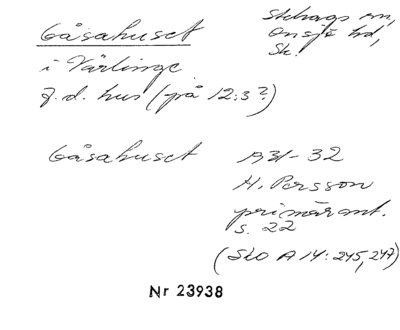 Gåsahuset
Skhags sn,
Onsjö hd,
Sk.
i Värlinge
f.d. hus (på 12:3?)
Gåsahuset 1931-32
H. Persson
primärut.
s. 22
(Sko A 14: 245, 247)
Nr 23938